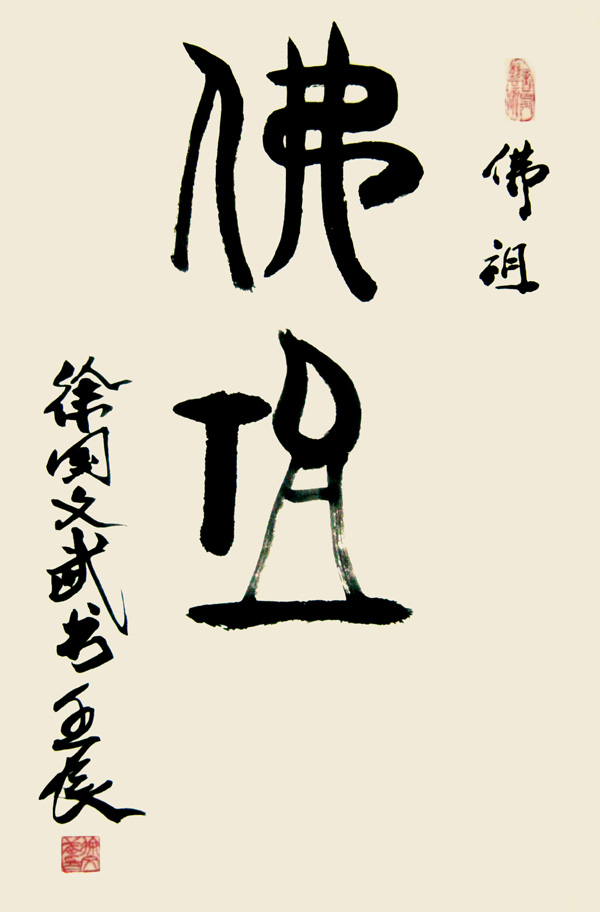 佛祖
佛祖
徐国文武书壬辰